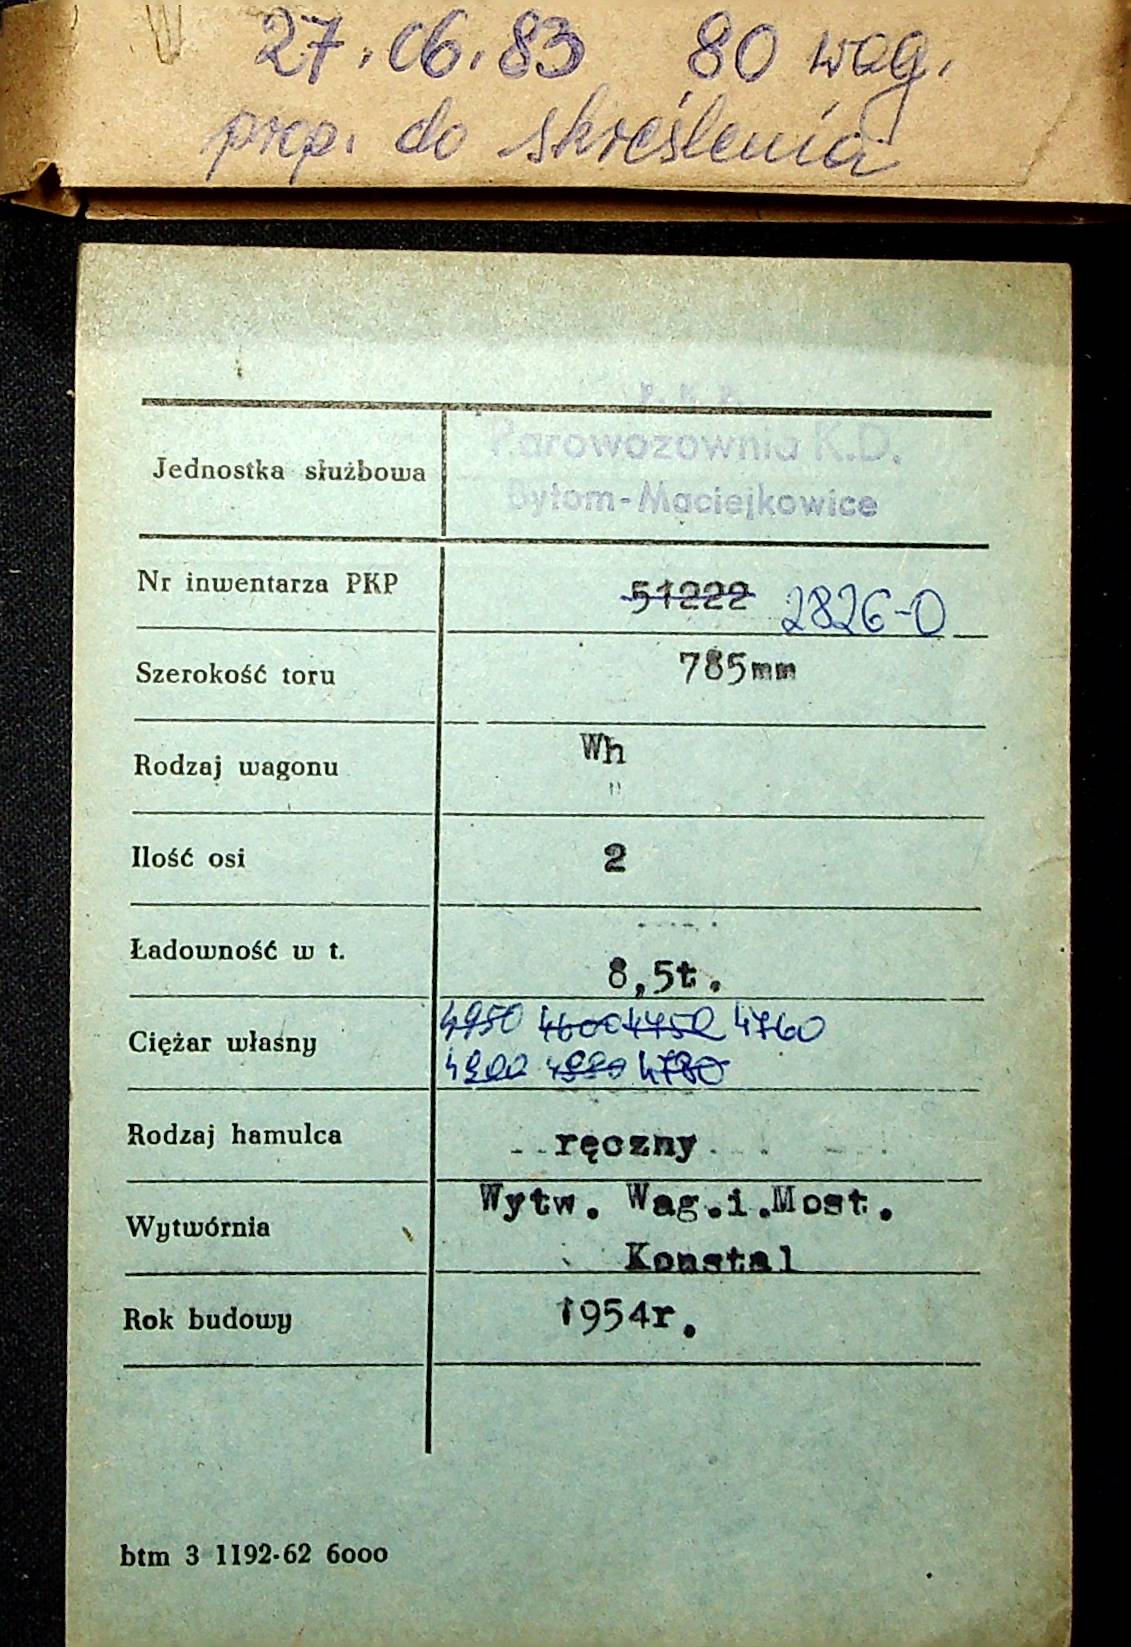 27.06.83 80 wag.
prop. do skreślenia
P.K.P.
Parowozownia K.D.
Jednostka służbowa
Bytom-Maciejkowice
Nr inwentarza PKP 51222 2826-0
Szerokość toru 785mm
Rodzaj wagonu Wh
"
Ilość osi 2
Ładowność w t. 8,5t.
Ciężar własny 4950 4600 4750 4760
4780
Rodzaj hamulca ręczny
Wytwórnia Wytw. Wag.i.Most.
Konstal
Rok budowy 1954r.
btm 3 1192-62 6000